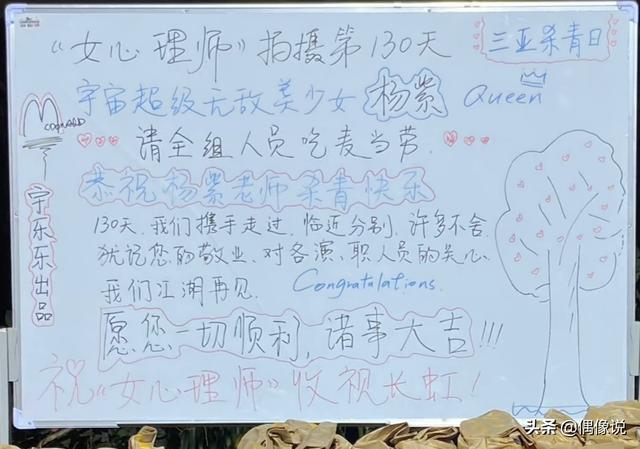 “女心理师”拍摄第130天
三亚杀青日
宇宙超级无敌美少女 杨紫 Queen
请全组人员吃麦当劳
恭祝杨紫老师杀青快乐
130天.我们携手走过.临近分别.许多不舍.
犹记您的敬业、对各演、职人员的关心、
我们江湖再见. Congratulations.
愿您一切顺利，诸事大吉!!!
祝“女心理师”收视长虹！
宇东东出品
头条 @偶像说